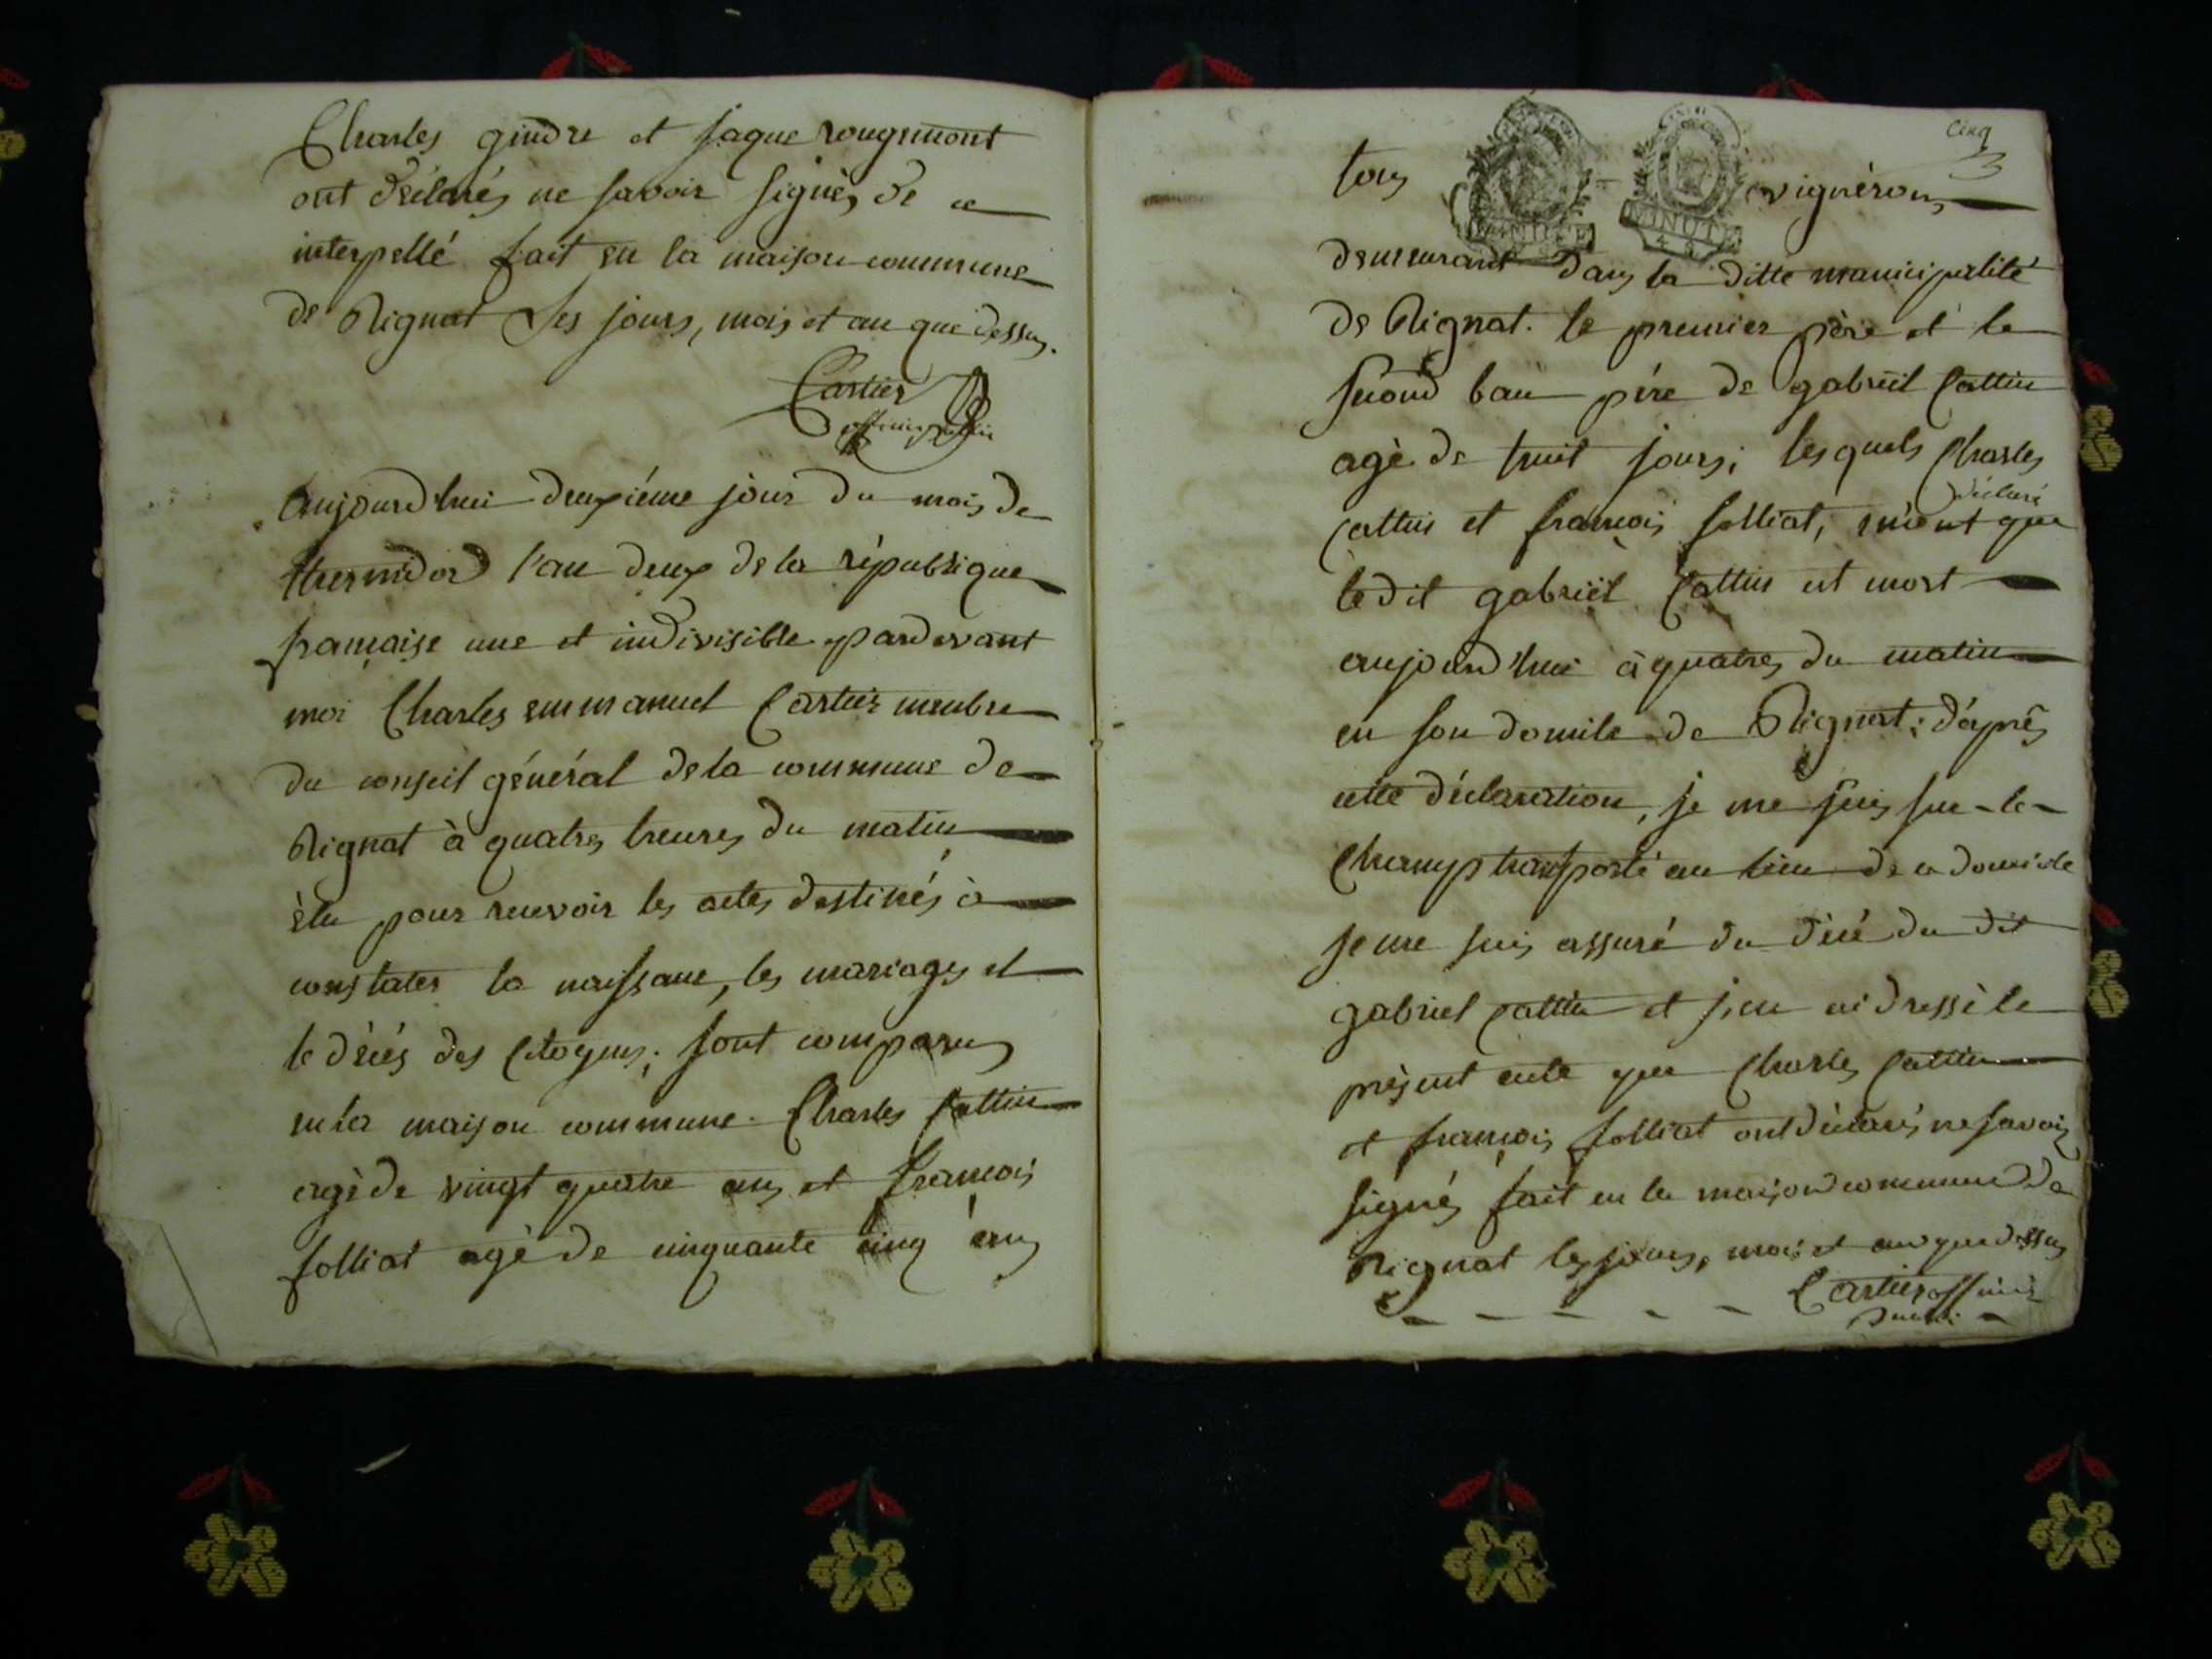 Charles gindre et jaque rougemont
ont déclarés ne savoir signés, de ce
interpellé fait en la maison commune
de Rignat Les jours, mois et an que dessus.
Cartier
aujourd'hui deuxiéme jour du mois de
thermidor l'an deux de la république
francaise une et indivisible pardevant
moi Charles emmanuel Cartier membre
du conseil général de la commune de
Rignat à quatres heures du matin
èlu pour recevoir les actes destinés à
constater la naissance, les mariages et
le décés des Citoyens; sont comparus
en la maison commune. Charles Cottin
agè de vingt quatre ans et francois
folliat agè de cinquante cinq ans
Cinq
tous vignérons
MINUTE
MINUTE
demeurant dans la ditte municipalité
de Rignat. le premier père et le
second bau pére de gabriël Cottin
agè de huit jours; lesquels Charles
déclaré
Cottin et francois folliat, m'ont que
le dit gabriël Cottin est mort
aujourd'hui à quatres du matin
en son domile de Rignat; d'aprês
cette déclaration, je me suis sur-le-
Champ transporté au lieu de ce domicile
je me suis assuré du décé du dit
gabriel Cottin et j'en ai dressè le
présent acte que Charles Cottin
et francois folliat ont déclarés ne savoir
signés fait en la maison commune de
Rignat les jours, mois et an que dessus
Cartier officier